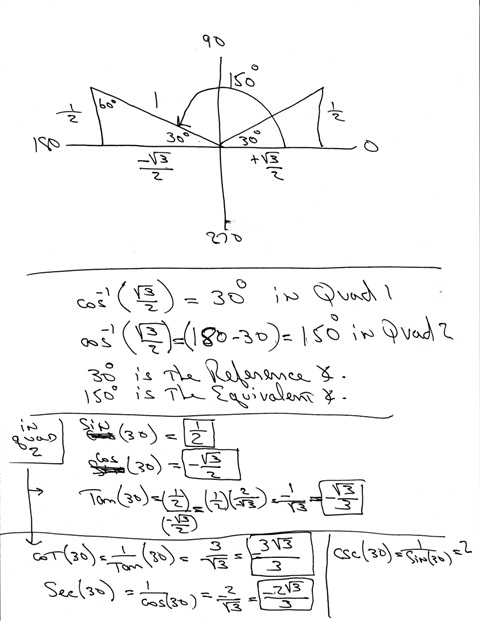 90
150°
1/2 60° 1 1/2
180 30° 30° 0
-√3/2 +√3/2
270
cos⁻¹(√3/2) = 30° in Quad 1
cos⁻¹(√3/2) = (180-30) = 150° in Quad 2
30° is The Reference ∡.
150° is The Equivalent ∡.
in quad 2
Sin(30) = 1/2
cos(30) = -√3/2
Tan(30) = (1/2)/(-√3/2) = (1/2)(2/-√3) = -1/√3 = -√3/3
cot(30) = 1/Tan(30) = 3/√3 = 3√3/3
csc(30) = 1/Sin(30) = 2
Sec(30) = 1/cos(30) = -2/√3 = -2√3/3